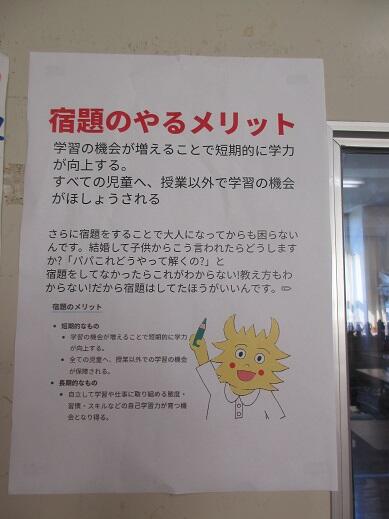 宿題のやるメリット
学習の機会が増えることで短期的に学力
が向上する。
すべての児童へ、授業以外で学習の機会
がほしょうされる
さらに宿題をすることで大人になってからも困らない
んです。結婚して子供からこう言われたらどうします
か?「パパこれどうやって解くの?」と
宿題をしてなかったらこれがわからない!教え方もわ
からない!だから宿題はしてたほうがいいんです。✏
宿題のメリット
• 短期的なもの
• 学習の機会が増えることで短期的に学力
が向上する。
• 全ての児童へ、授業以外での学習の機会
が保障される。
• 長期的なもの
• 自立して学習や仕事に取り組める態度・
習慣・スキルなどの自己学習力が育つ機
会となり得る。